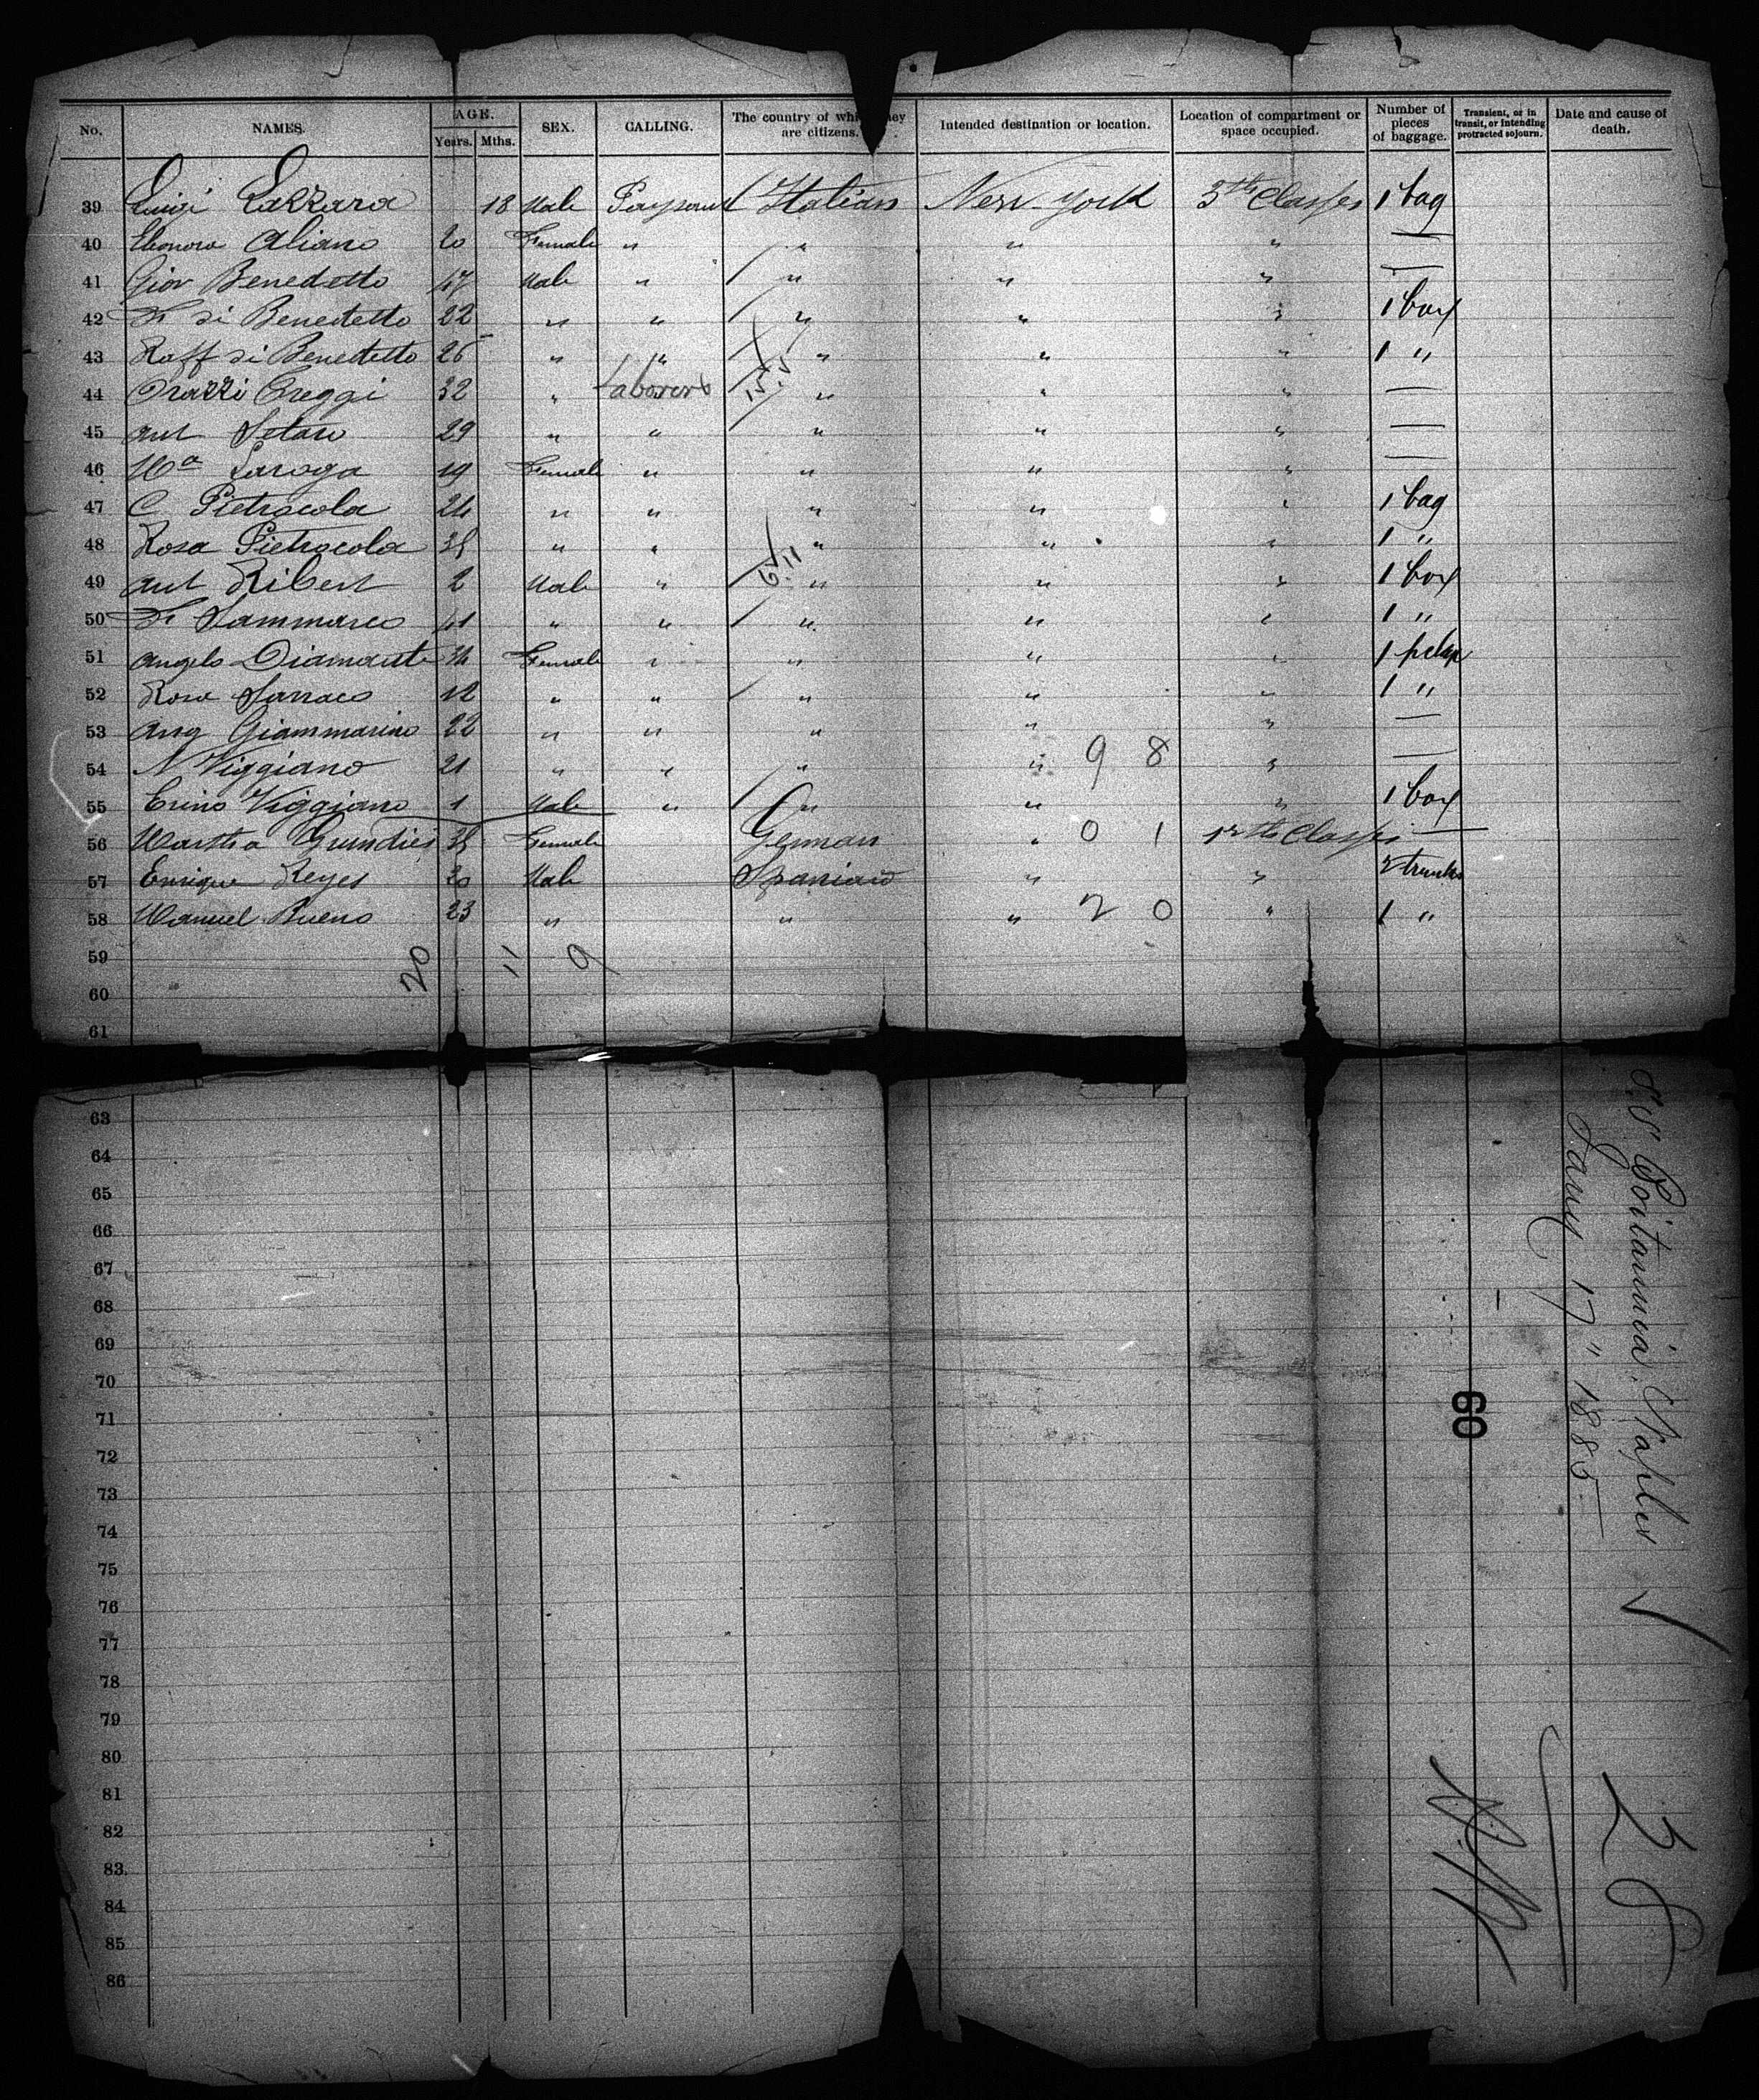 No. NAMES. AGE. Years. Mths. SEX. CALLING. The country of whi ey are citizens. Intended destination or location. Location of compartment or space occupied. Number of pieces of baggage. Transient, or in transit, or intending protracted sojourn. Date and cause of death.
39 Luigi Lazzara 18 Male Paysant Italian New-York 3th Classes 1 bag
40 Eleonora Aliano 20 Female " " " " —
41 Giov Benedetto 47 Male " " " " —
42 F di Benedetto 22 " " " " " 1 box
43 Raff di Benedetto 26 " " " " " 1 "
44 Orazzi Greggi 32 " Laborers " " " —
45 Ant 29 " " " " " —
46 Ma 19 Female " " " " —
47 C Pietrocola 24 " " " " " 1 bag
48 Rosa Pietrocola 38 " " " " " 1 "
49 Ant Ribert 2 Male " " " " 1 box
50 F Sammarco 41 " " " " " 1 "
51 Angelo Diamante 34 Female " " " " 1
52 Rosa 12 " " " " " 1 "
53 Ang Giammarino 22 " " " " " —
54 N Viggiano 21 " " " " 9 8 " —
55 Viggiano 1 Male " " " " 1 box
56 Martha Grundies 38 Female German " 0 1 Classes —
57 Enrique Reyes 30 Male Spaniard " " 2 trunks
58 Manuel Bueno 23 " " " 2 0 " 1 "
59 20 11 9
60
61
63
64
65
66
67
68
69
70
71
72
73
74
75
76
77
78
79
80
81
82
83
84
85
86
S.S. Britannia, Naples
Jany 17 " 1885
60